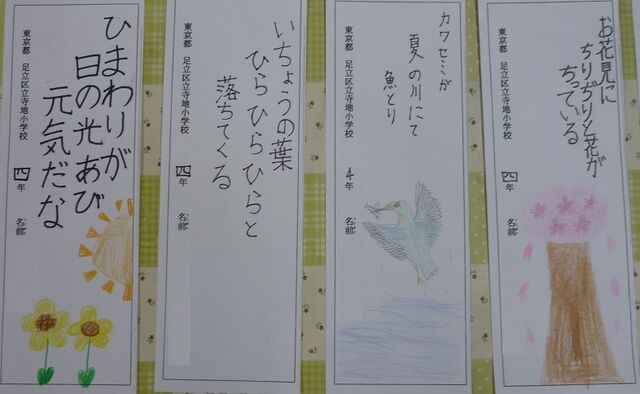 ひまわりが
日の光あび
元気だな
東京都 足立区立寺地小学校 四年 名前
いちょうの葉
ひらひらひらと
落ちてくる
東京都 足立区立寺地小学校 四年 名前
カワセミが
夏の川にて
魚とり
東京都 足立区立寺地小学校 4年 名前
お花見に
ちりぢりと花が
ちっている
東京都 足立区立寺地小学校 四年 名前